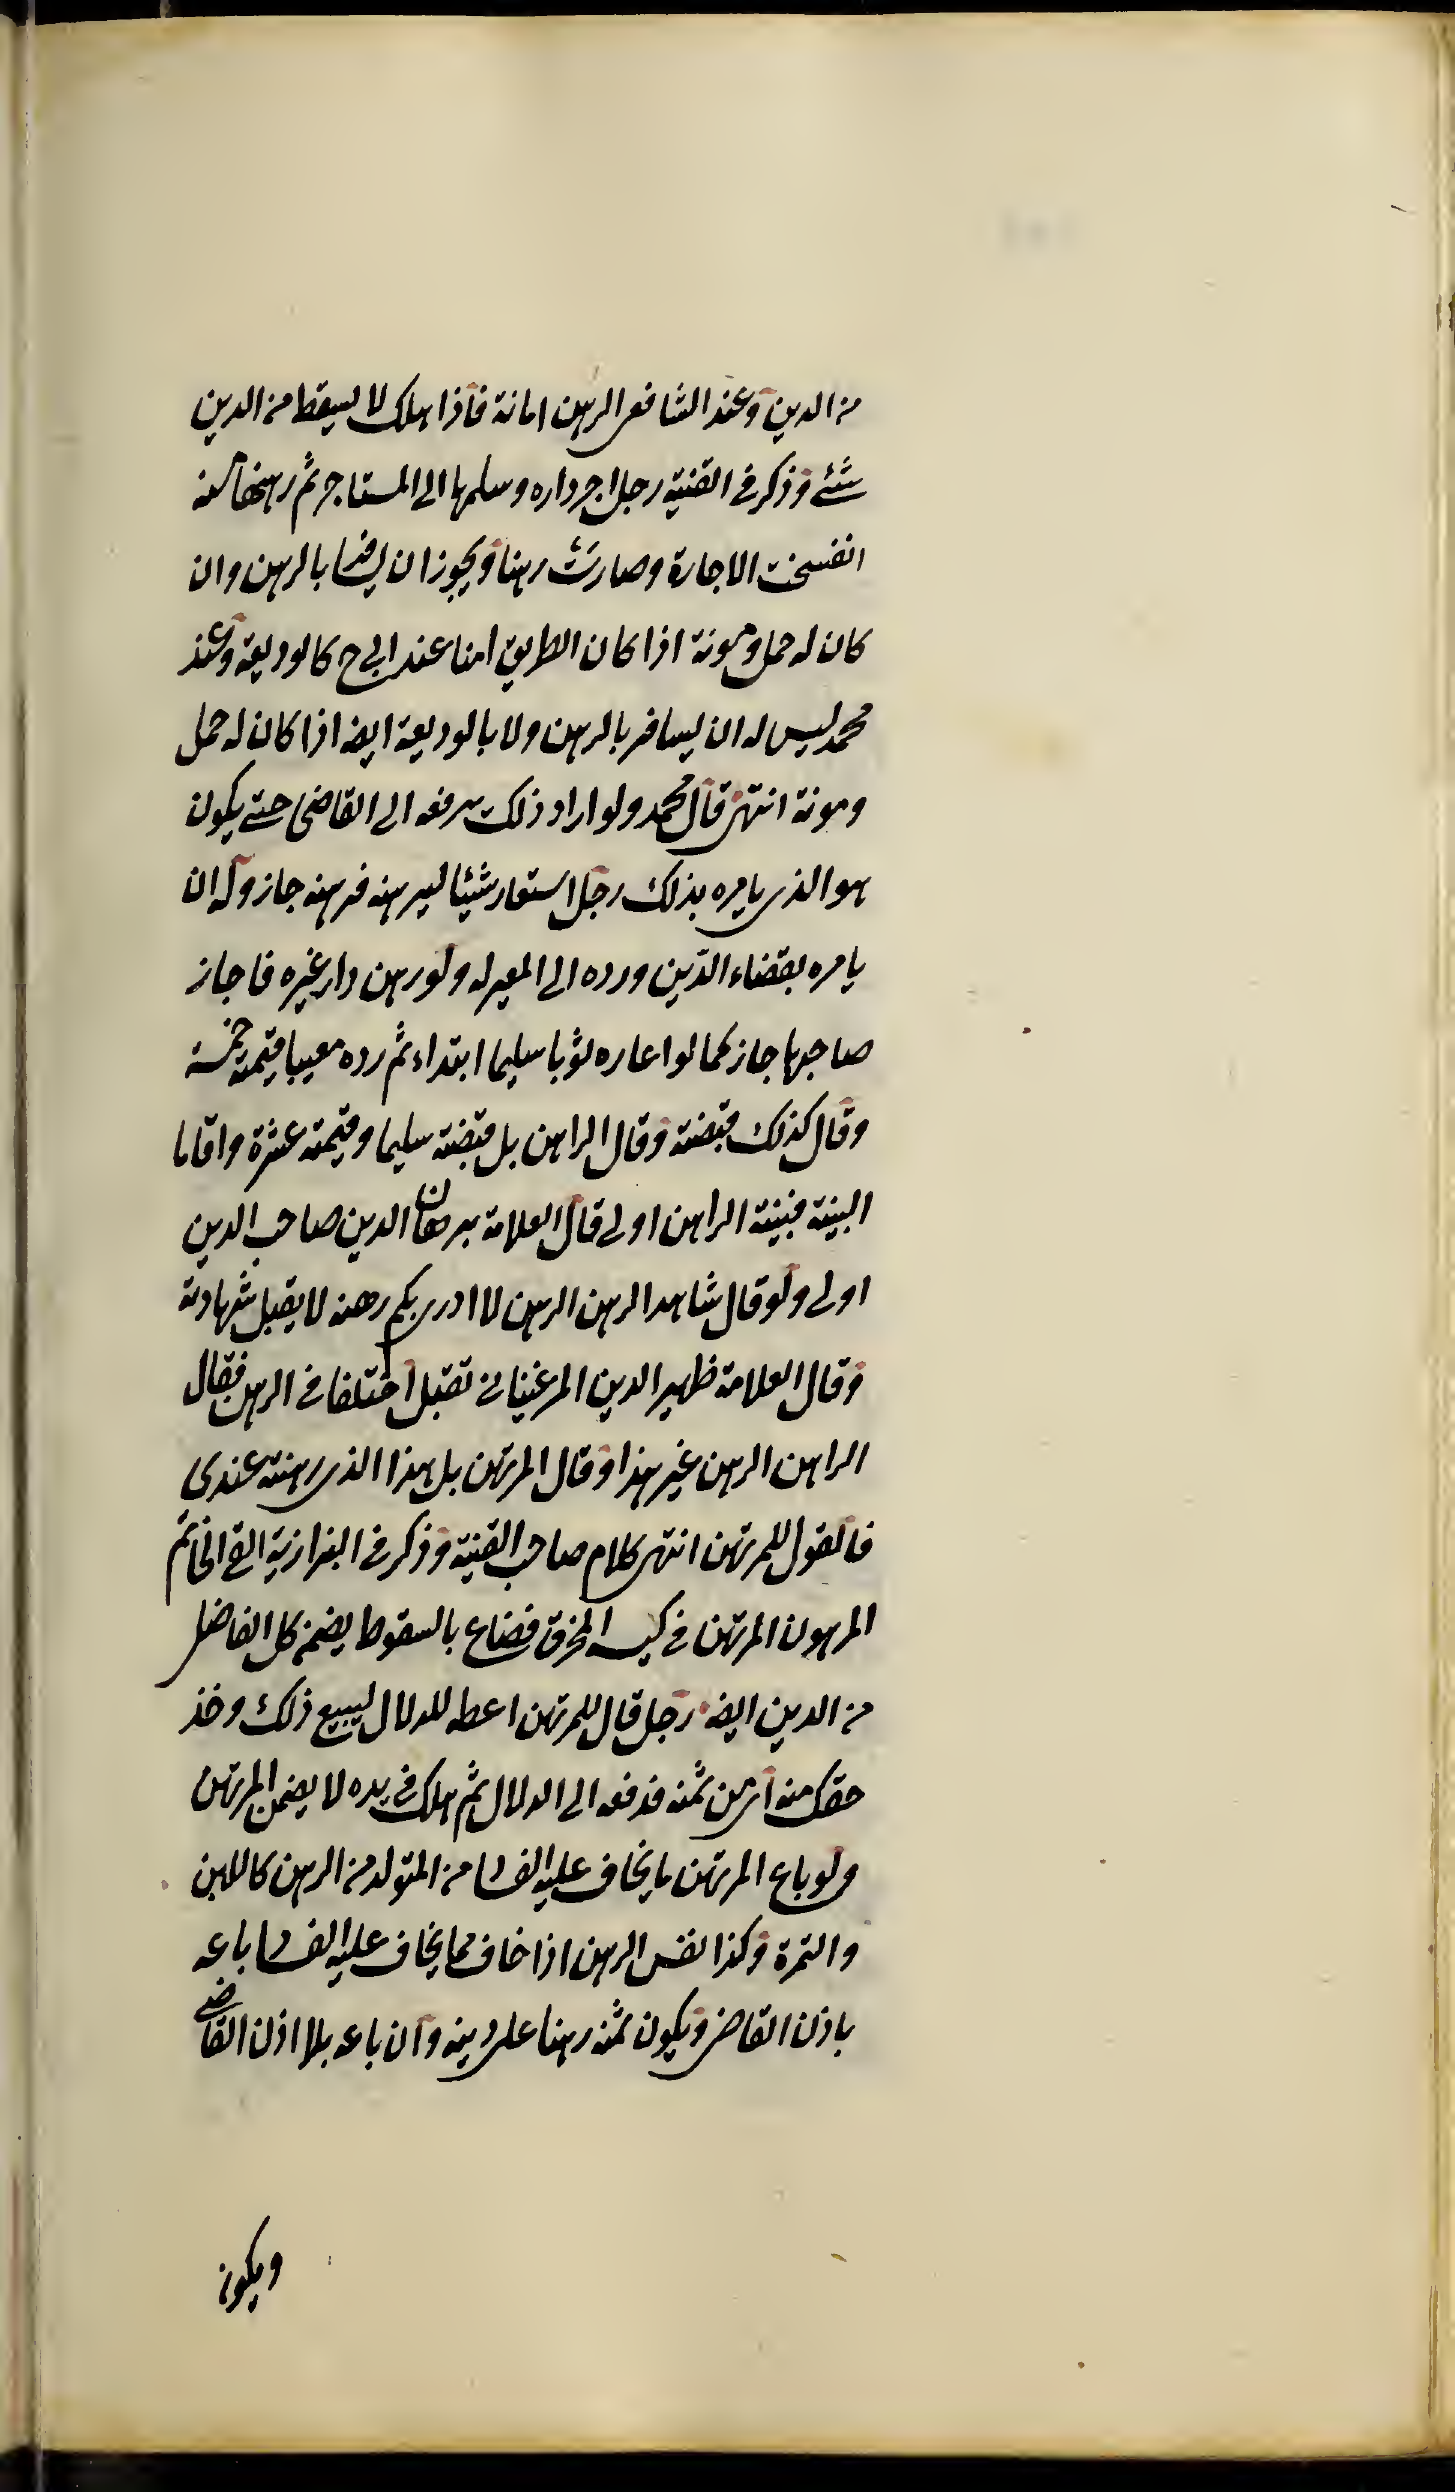 من الدين وعند الشافعى الرهن امانة فاذا هلك لا يسقط من الدين
شئ وذكر فى القنية رجل اجر داره وسلمها الى المستاجر ثم رهنها منه
انفسخت الاجارة وصارت رهنا ويجوز ان يسافر بالرهن وان
كان له حمل ومونة اذا كان الطريق امنا عند ابى ح كالوديعة وعند
محمد ليس له ان يسافر بالرهن ولا بالوديعة ايضه اذا كان له حمل
ومونة انتهى قال محمد ولو اراد ذلك يرفعه الى القاضى حتى يكون
هو الذى يامره بذلك رجل استعار شيئا ليرهنه فرهنه جاز وله ان
يامره بقضاء الدين ورده الى المعير له ولو رهن دار غيره فاجاز
صاحبها جاز كما لو اعاره ثوبا سليما ابتداء ثم رده معيبا قيمته خمسة
وقال كذلك قبضته وقال الراهن بل قبضته سليما وقيمته عشرة واقاما
البينة فبينة الراهن اولى قال العلامة برهان الدين صاحب الدين
اولى ولو قال شاهد الرهن الرهن لا ادرى بكم رهنه لا يقبل شهادته
وقال العلامة ظهير الدين المرغينانى تقبل اختلفا فى الرهن فقال
الراهن الرهن غير هذا وقال المرتهن بل هذا الذى رهنته عندى
فالقول للمرتهن انتهى كلام صاحب القنية وذكر فى البزازية القى الخاتم
المرهون المرتهن فى كيسه المخرق فضاع بالسقوط يضمن كل الفاضل
من الدين ايضه رجل قال للمرتهن اعطه للدلال ليبيع ذلك وخذ
حقك منه اى من ثمنه فدفعه الى الدلال ثم هلك فى يده لا يضمن المرتهن
ولو باع المرتهن ما يخاف عليه الفساد من المتولد من الرهن كاللبن
والثمرة وكذا نفس الرهن اذا خاف مما يخاف عليه الفساد باعه
باذن القاضى ويكون ثمنه رهنا على دينه وان باعه بلا اذن القاضى
ويكون